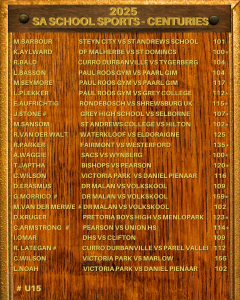 2025
SA SCHOOL SPORTS - CENTURIES
M.BARBOUR STEYN CITY VS ST ANDREWS SCHOOL 101
K.AYLWARD DF MALHERBE VS ST DOMINICS 100*
R.BALD CURRO DURBANVILLE VS TYGERBERG 104
L.BASSON PAUL ROOS GYM VS PAARL GIM 104
M.SEYMORE PAUL ROOS GYM VS PAARL GIM 112
L.PLEKKER PAUL ROOS GYM VS GREY COLLEGE 112
E.AUFRICHTIG RONDEBOSCH VS SHREWSBURY UK 115
J.STONE # GREY HIGH SCHOOL VS SELBORNE 107
M.SANSOM ST ANDREWS COLLEGE VS HILTON 102
R.VAN DER WALT WATERKLOOF VS ELDORAIGNE 125
R.PARKER FAIRMONT VS WESTERFORD 135
A.WAGGIE SACS VS WYNBERG 100
T.JAPTHA BISHOPS VS PEARSON 120
C.WILSON VICTORIA PARK VS DANIEL PIENAAR 116
D.ERASMUS DR MALAN VS VOLKSKOOL 109
G.MORRICO # DR MALAN VS VOLKSKOOL 158
M.VAN DER MERWE # DR MALAN VS VOLKSKOOL 102
D.KRUGER PRETORIA BOYS HIGH VS MENLOPARK 123
C.ARMSTRONG # PEARSON VS UNION HS 114
I.OMAR DHS VS CLIFTON 109
R.LATEGAN # CURRO DURBANVILLE VS PAREL VALLEI 112
C.WILSON VICTORIA PARK VS MARLOW 156
L.NOAH VICTORIA PARK VS DANIEL PIENAAR 102
# U15